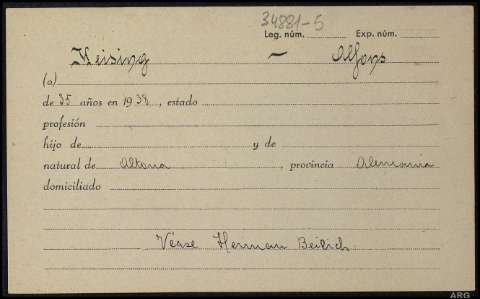 34881-5
Leg. núm. Exp. núm.
Keising — Alfons
(a)
de 35 años en 1939, estado
profesión
hijo de y de
natural de Altona, provincia Alemania
domiciliado
Véase Herman Beilich
ARG